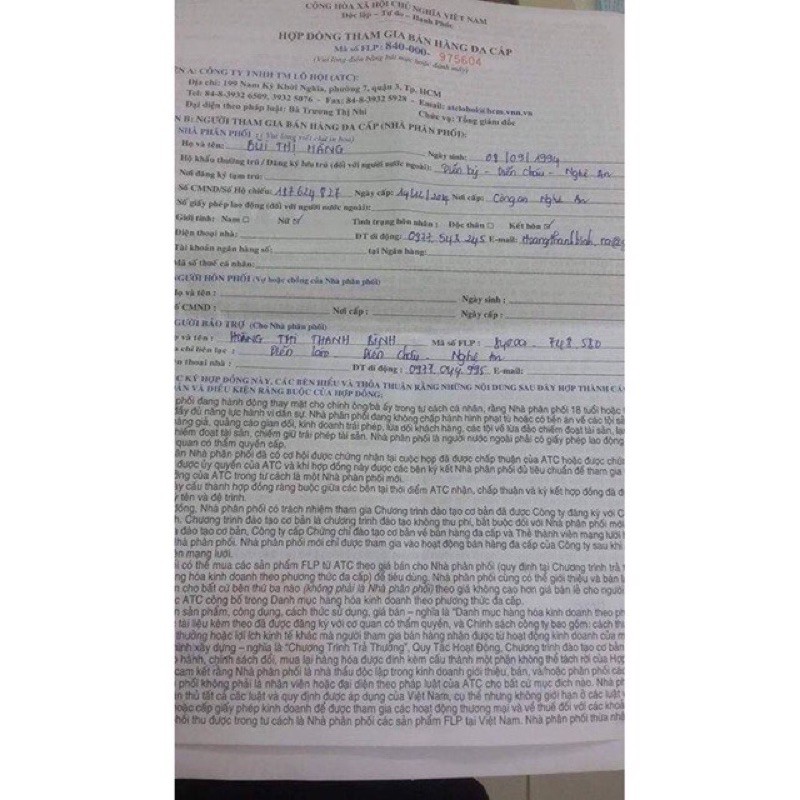 CỘNG HÒA XÃ HỘI CHỦ NGHĨA VIỆT NAM
Độc lập – Tự do – Hạnh Phúc
HỢP ĐỒNG THAM GIA BÁN HÀNG ĐA CẤP
Mã số FLP : 840-000- 975604
(Vui lòng điền bằng bút mực hoặc đánh máy)
ÊN A: CÔNG TY TNHH TM LÔ HỘI (ATC):
Địa chỉ: 199 Nam Kỳ Khởi Nghĩa, phường 7, quận 3, Tp. HCM
Tel: 84-8-3932 6509, 3932 5076 - Fax: 84-8-3932 5928 - Email: atclohoi@hcm.vnn.vn
Đại diện theo pháp luật: Bà Trương Thị Nhi Chức vụ: Tổng giám đốc
ÊN B: NGƯỜI THAM GIA BÁN HÀNG ĐA CẤP (NHÀ PHÂN PHỐI):
NHÀ PHÂN PHỐI : ( Vui lòng viết chữ in hoa)
Họ và tên: BÙI THỊ HẰNG Ngày sinh: 08/09/1994
Hộ khẩu thường trú / Đăng ký lưu trú (đối với người nước ngoài): Diễn kỷ - Diễn châu - Nghệ An
Nơi đăng ký tạm trú:
Số CMND/Số Hộ chiếu: 187624827 Ngày cấp: Nơi cấp: Công an Nghệ An
Số giấy phép lao động (đối với người nước ngoài):
Giới tính: Nam □ Nữ ☑ Tình trạng hôn nhân : Độc thân □ Kết hôn ☑
Điện thoại nhà: ĐT di động: 0977 543 245 E-mail: hoangthanhbinh
Tài khoản ngân hàng số: tại Ngân hàng:
Mã số thuế cá nhân:
NGƯỜI HÔN PHỐI (Vợ hoặc chồng của Nhà phân phối)
Họ và tên : Ngày sinh :
Số CMND : Nơi cấp : Ngày cấp :
NGƯỜI BẢO TRỢ (Cho Nhà phân phối)
ọ và tên : HOÀNG THỊ THANH BÌNH Mã số FLP : 840000 - 748 580
ịa chỉ liên lạc : Diễn lâm Diễn châu - Nghệ An
ện thoại nhà : ĐT di động : 0977 044 995 E-mail:
ỆC KÝ HỢP ĐỒNG NÀY, CÁC BÊN HIỂU VÀ THỎA THUẬN RẰNG NHỮNG NỘI DUNG SAU ĐÂY HỢP THÀNH CÁ
ẢN VÀ ĐIỀU KIỆN RÀNG BUỘC CỦA HỢP ĐỒNG:
phối đang hành động thay mặt cho chính ông/bà ấy trong tư cách cá nhân, rằng Nhà phân phối 18 tuổi hoặc
đầy đủ năng lực hành vi dân sự. Nhà phân phối đang không chấp hành hình phạt tù hoặc có tiền án về các tội sả
àng giả, quảng cáo gian dối, kinh doanh trái phép, lừa dối khách hàng, các tội về lừa đảo chiếm đoạt tài sản, lạ
hiếm đoạt tài sản, chiếm giữ trái phép tài sản. Nhà phân phối là người nước ngoài phải có giấy phép lao động
quan có thẩm quyền cấp.
ận Nhà phân phối đã có cơ hội được chứng nhận tại cuộc họp đã được chấp thuận của ATC hoặc được chứn
được ủy quyền của ATC và khi hợp đồng này được các bên ký kết Nhà phân phối đủ tiêu chuẩn để tham gia
ộng của ATC trong tư cách là một Nhà phân phối mới.
ày cấu thành hợp đồng ràng buộc giữa các bên tại thời điểm ATC nhận, chấp thuận và ký kết hợp đồng đã đ
ý tên và đệ trình.
đồng, Nhà phân phối có trách nhiệm tham gia Chương trình đào tạo cơ bản đã được Công ty đăng ký với C
h. Chương trình đào tạo cơ bản là chương trình đào tạo không thu phí, bắt buộc đối với Nhà phân phối mới
đào tạo cơ bản, Công ty cấp Chứng chỉ đào tạo cơ bản về bán hàng đa cấp và Thẻ thành viên mạng lưới
hà phân phối. Nhà phân phối mới chỉ được tham gia vào hoạt động bán hàng đa cấp của Công ty sau khi
ên mạng lưới.
i có thể mua các sản phẩm FLP từ ATC theo giá bán cho Nhà phân phối (quy định tại Chương trình trả t
ng hóa kinh doanh theo phương thức đa cấp) để tiêu dùng. Nhà phân phối cũng có thể giới thiệu và bán l
n cho bất cứ bên thứ ba nào (không phải là Nhà phân phối) theo giá không cao hơn giá bán lẻ cho người
c ATC công bố trong Danh mục hàng hóa kinh doanh theo phương thức đa cấp.
n sản phẩm, công dụng, cách thức sử dụng, giá bán – nghĩa là "Danh mục hàng hóa kinh doanh theo ph
tài liệu kèm theo đã được đăng ký với cơ quan có thẩm quyền, và Chính sách công ty bao gồm: cách th
thưởng hoặc lợi ích kinh tế khác mà người tham gia bán hàng nhận được từ hoạt động kinh doanh của m
ình xây dựng – nghĩa là "Chương Trình Trả Thưởng", Quy Tắc Hoạt Động, Chương trình đào tạo cơ bản
hành, chính sách đổi, mua lại hàng hóa được đính kèm cấu thành một phần không thể tách rời của Hợp
cam kết rằng Nhà phân phối là nhà thầu độc lập trong kinh doanh giới thiệu, bán, và/hoặc phân phối cá
phối không phải là nhân viên hoặc đại diện theo pháp luật của ATC cho bất cứ mục đích nào. Nhà p
ân thủ tất cả các luật và quy định được áp dụng của Việt Nam, cụ thể nhưng không giới hạn ở các luật v
oặc cấp giấy phép kinh doanh để được tham gia các hoạt động thương mại và về thuế đối với các khoả
hối thu được trong tư cách là Nhà phân phối các sản phẩm FLP tại Việt Nam. Nhà phân phối thừa nhậ